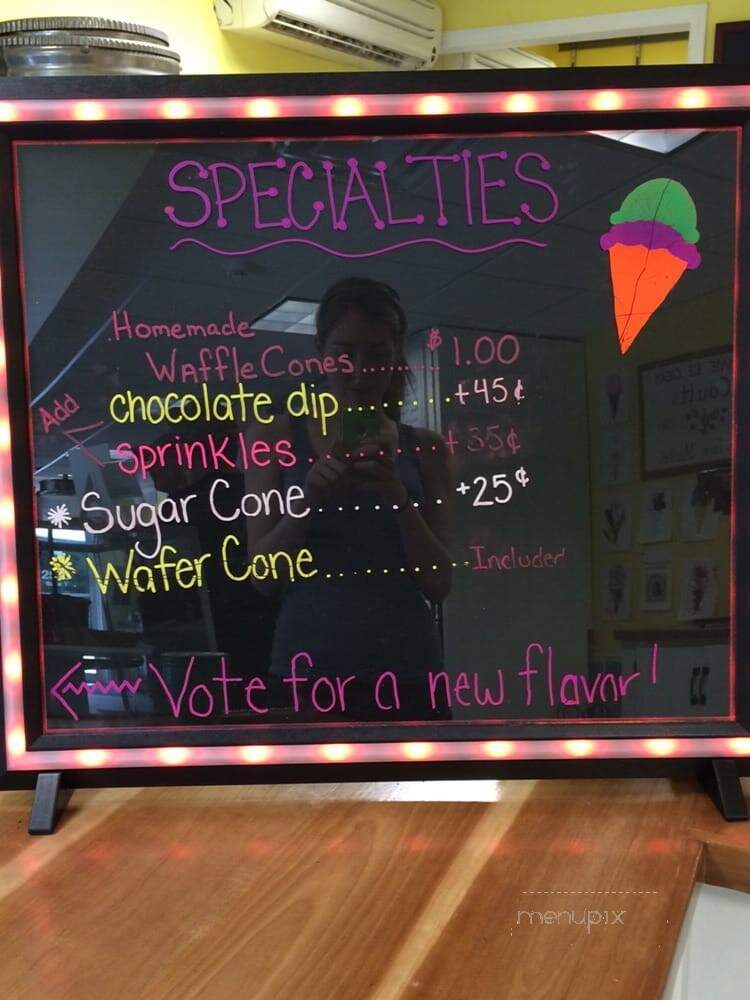 SPECIALTIES
Homemade
Waffle Cones.......... $1.00
Add
chocolate dip.......+45¢
sprinkles........+35¢
* Sugar Cone.......+25¢
* Wafer Cone.........Included
Vote for a new flavor!
menupix